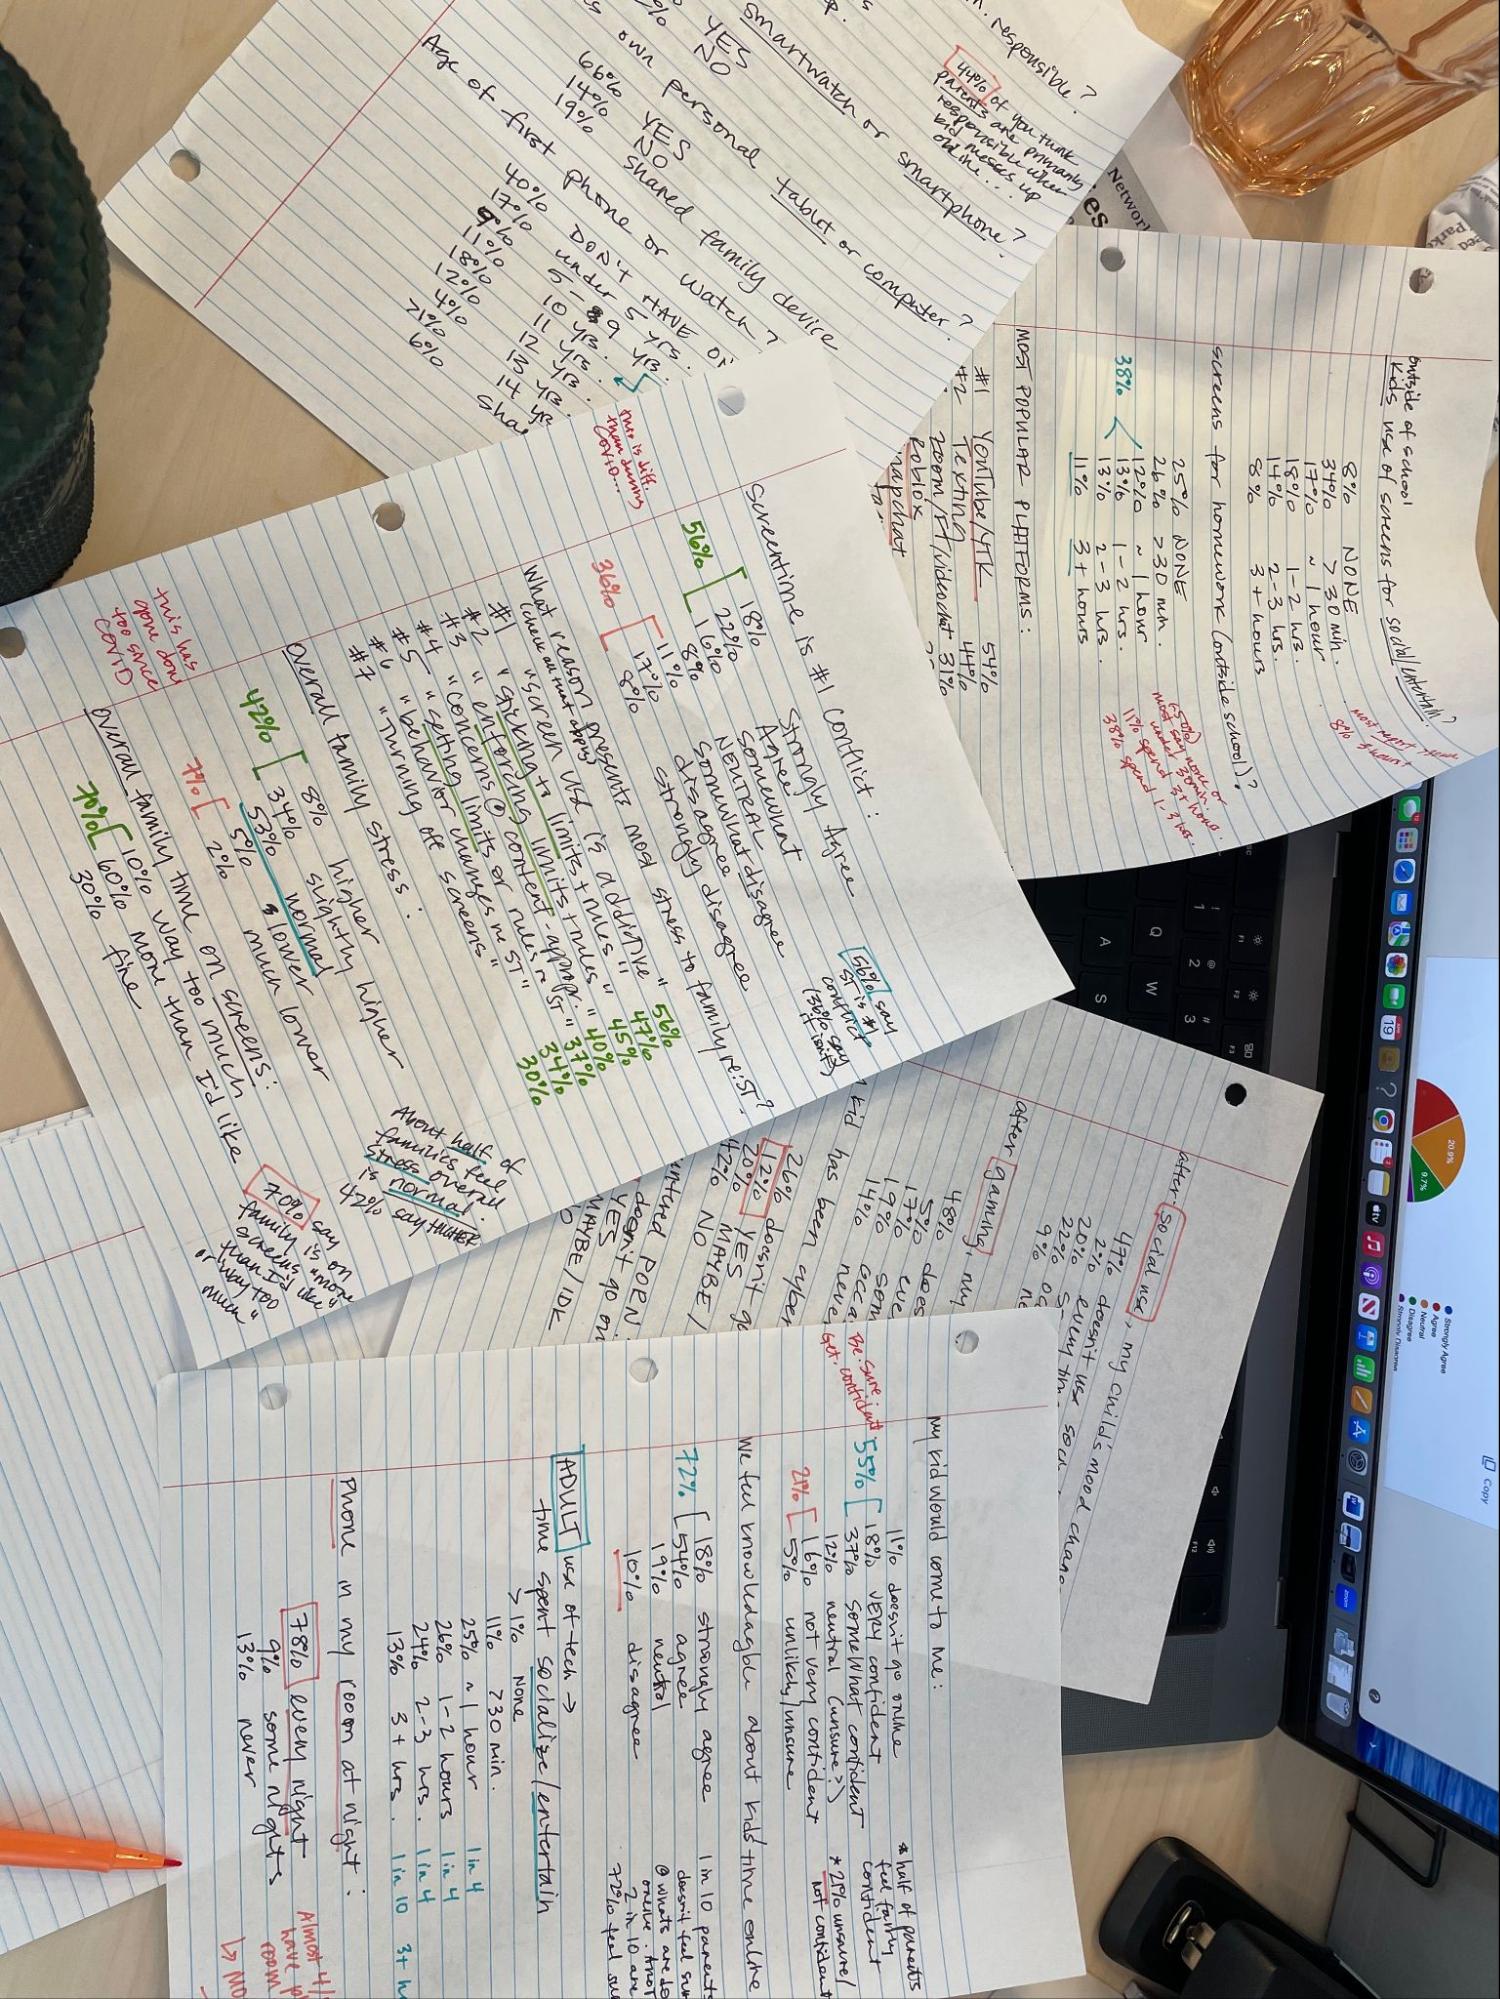 responsible?
44% of you think
parents are primarily
responsible when
kid messes up
online...
smartwatch or smartphone?
YES
NO
own personal tablet or computer?
66% YES
14% NO
19% shared family device
Age of first phone or watch?
40% DON'T HAVE
17% under 5 yrs.
5-9 yrs.
11% 10 yrs.
18% 11 yrs.
12% 12 yrs.
4% 13 yrs.
>1% 14 yr
6% sha
Network
es
outside of school
kids use of screens for social/entertain?
8% NONE
34% >30 min.
17% ~1 hour
18% 1-2 hrs.
14% 2-3 hrs.
8% 3+ hours
screens for homework (outside school)?
25% NONE
26% >30 min.
12% ~1 hour
38% 13% 1-2 hrs.
13% 2-3 hrs.
11% 3+ hours
(50%)
most say none or
under 30min.
11% spend 3+ hours.
38% spend 1-3 hrs.
MOST POPULAR PLATFORMS:
#1 YouTube/YTK 54%
#2 Texting 44%
zoom/FT/videochat 31%
Roblox
snapchat
Screentime is #1 conflict:
18% Strongly Agree
56% 22% Agree
16% Somewhat
8% NEUTRAL
36% 11% Somewhat disagree
17% disagree
8% strongly disagree
this is diff.
than during
COVID...
56% say
ST is #1
conflict
(36% say
it isn't)
What reason presents most stress to family re: ST?
(check all that apply)
#1 "screen use is addictive" 56%
#2 "sticking to limits + rules" 47%
#3 "enforcing limits + rules" 45%
#4 "concerns @ content-appropr." 40%
#5 "setting limits or rules re ST" 37%
#6 "behavior changes re ST" 34%
#7 "Turning off screens" 30%
Overall family stress:
8% higher
42% 34% slightly higher
53% normal
7% 5% lower
2% much lower
this has
gone down
too since
COVID
About half of
families feel
stress overall
is normal.
42% say HIGHER
Overall family time on screens:
70% 10% way too much
60% more than I'd like
30% fine
70% say
family is on
screens "more
than I'd like"
or "way too
much"
after social use, my child's mood chang
47% doesn't use soc
2% every tim
20%
22%
9%
after gaming, my
48% does
5% eve
17% som
19% occa
14% neve
kid has been cyber
26% doesn't go
12% YES
20% MAYBE/
42% NO
PORN
doesn't go on
YES
MAYBE/IDK
My kid would come to me:
11% doesn't go online
55% 18% VERY confident
37% somewhat confident
12% neutral (unsure?)
21% 16% not very confident
5% unlikely/unsure
Be. Sure.
Get. confident
* half of parents
feel fairly
confident
* 21% unsure/
not confident
We feel knowledgable about kids' time online
72% 18% strongly agree
54% agree
19% neutral
10% disagree
1 in 10 parents
doesn't feel sur
@ what's
online.
2 in 10 are
72% feel su
ADULT use of tech →
time spent socialize/entertain
>1% None
11% >30 min.
25% ~1 hour 1 in 4
26% 1-2 hours 1 in 4
24% 2-3 hrs. 1 in 4
13% 3+ hrs. 1 in 10 3+ h
Phone in my room at night:
78% every night
9% some nights
13% never
Almost 4/
have p
room
↳ NO
20.9%
9.7%
Strongly Agree
Agree
Neutral
Disagree
Strongly Disagree
Copy
19
tv
zoom
1
2
3
Q
W
A
S